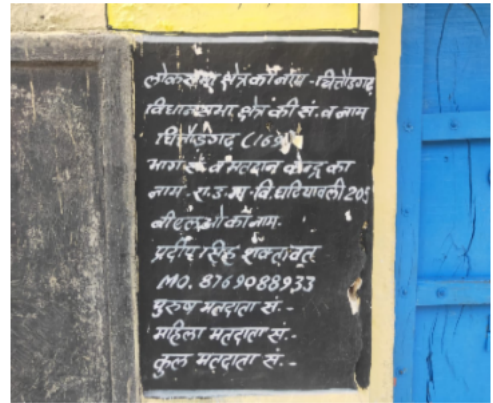 लोकसभा क्षेत्र का नाम - चित्तौड़गढ़
विधानसभा क्षेत्र की सं. व नाम
चित्तौड़गढ़ (169)
भाग सं. व मतदान केन्द्र का
नाम - रा.उ.मा.वि. घटियावली 205
बीएलओ का नाम-
प्रदीप सिंह शक्तावत
MO. 8769088933
पुरुष मतदाता सं.-
महिला मतदाता सं.-
कुल मतदाता सं.-